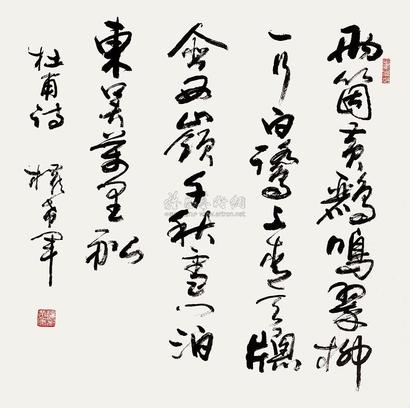 兩箇黃鸝鳴翠柳
一行白鷺上青天窗
含西嶺千秋雪门泊
東吴萬里船
杜甫诗 權希軍
雅昌藝術網
www.artron.net